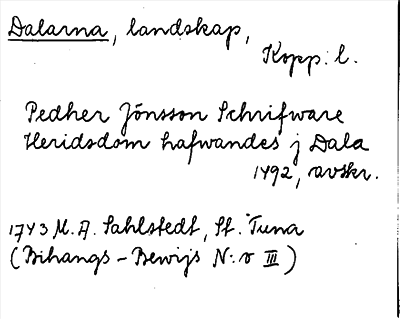 Dalarna, landskap,
Kopp: l.
Pedher Jönsson Schrifware
Heridsdom hafwandes j Dala
1492, avskr.
1743 M. A. Sahlstedt, St. Tuna
(Bihangs-Bewijs N:o III)